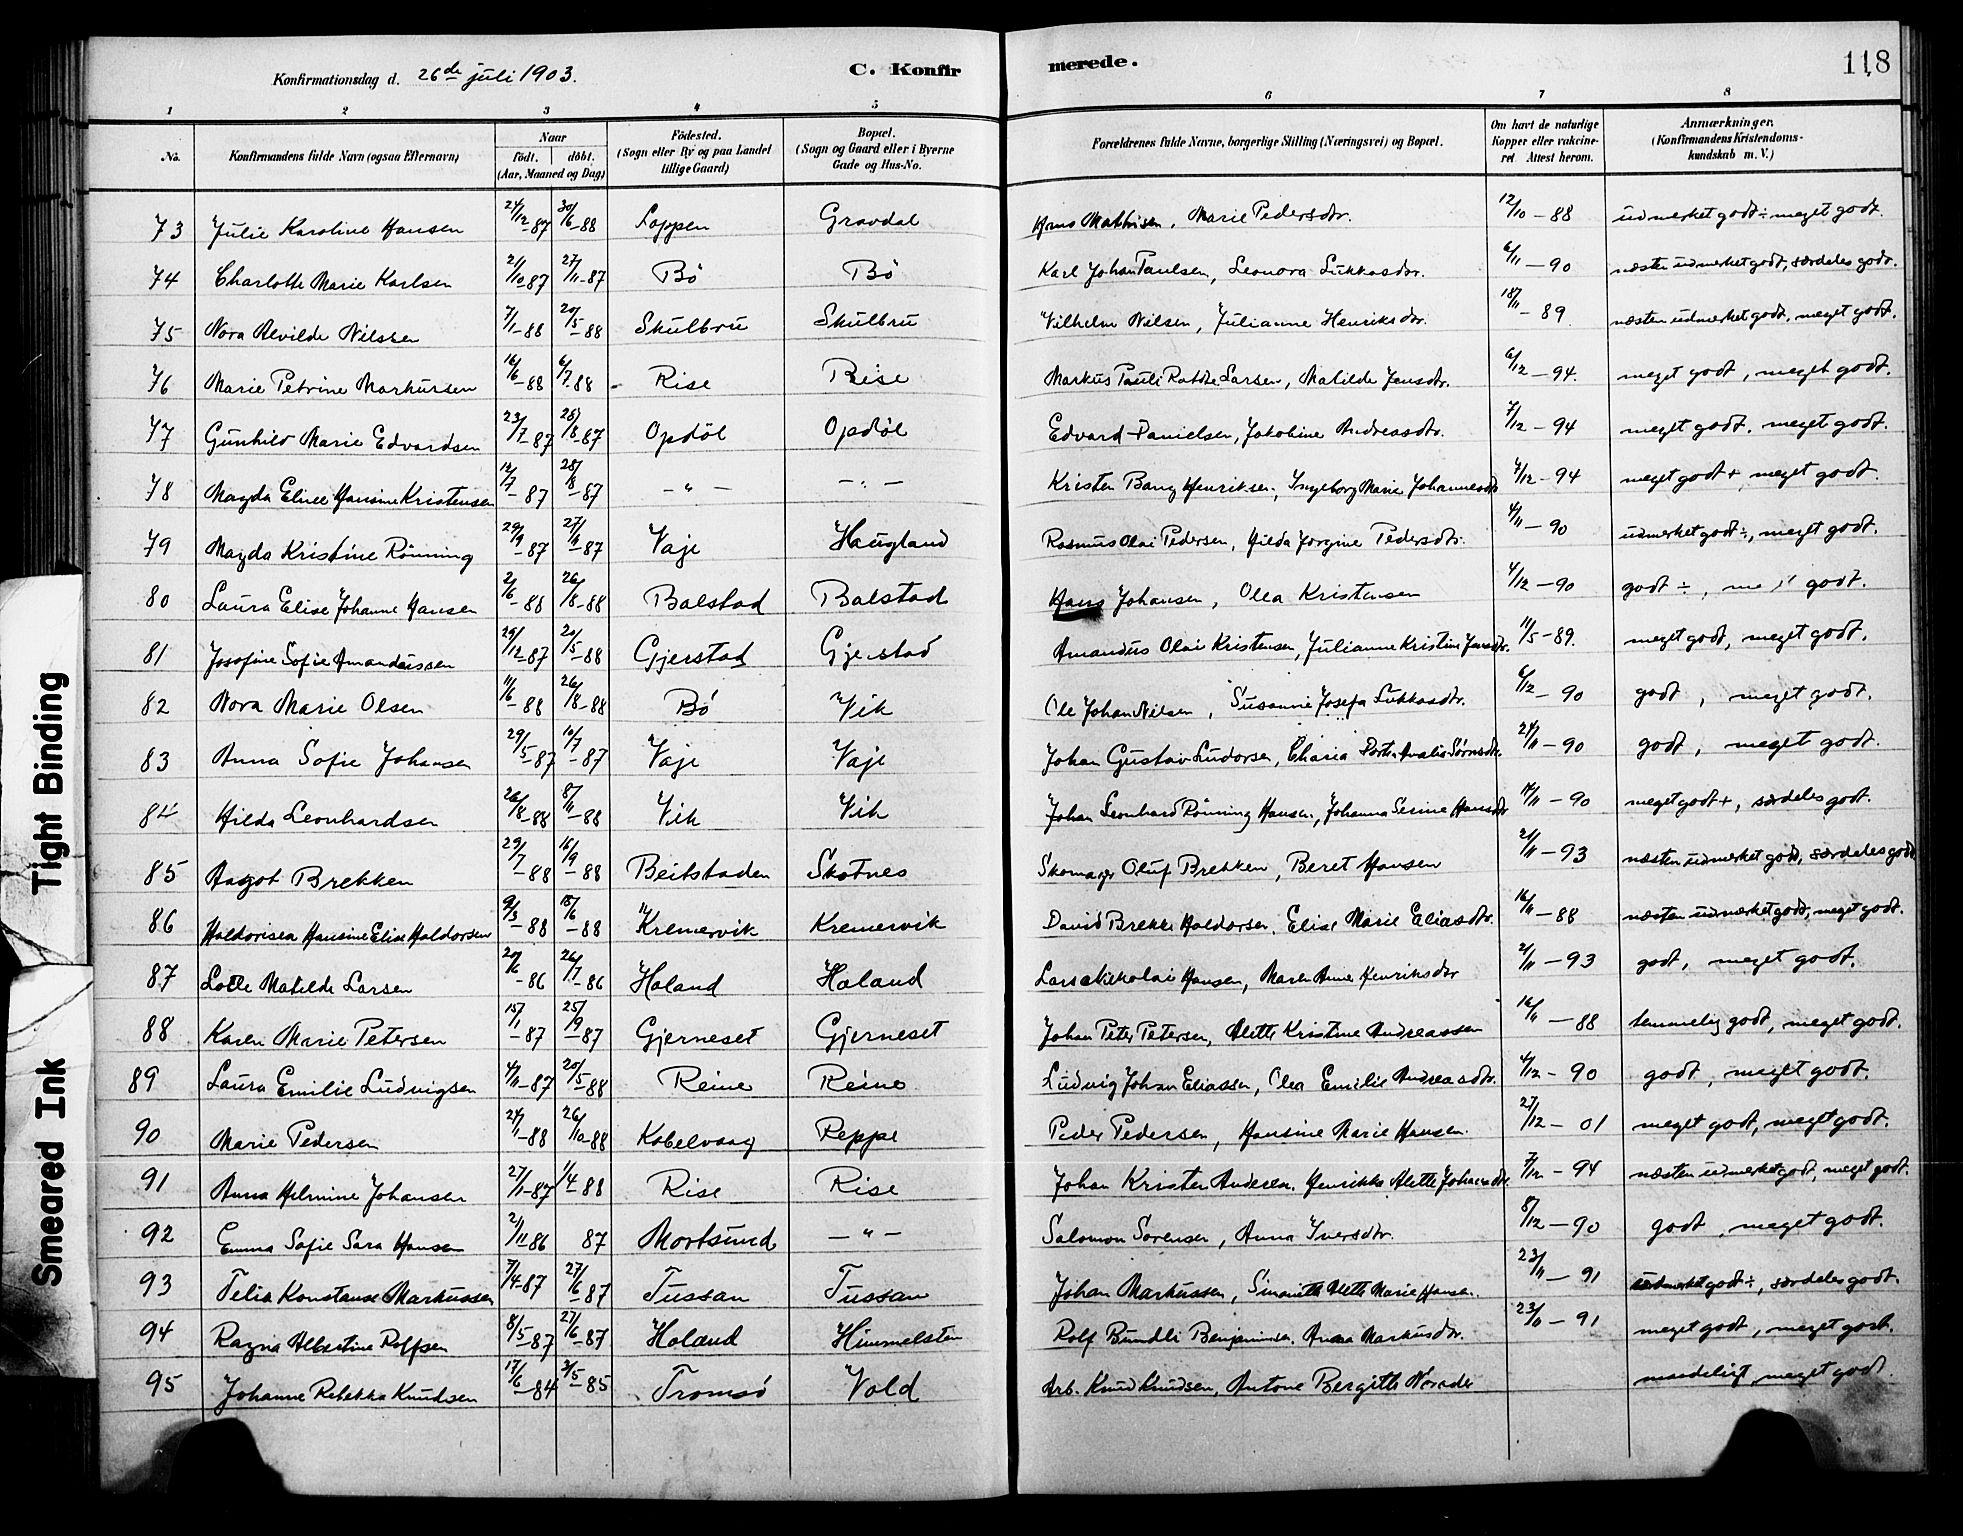 Konfirmationsdag d. 26de juli 1903. C. Konfirmerede. 118
1 2 3 4 5 6 7 8
No. Konfirmandens fulde Navn (ogsaa Efternavn) Naar födt. döbt. (Aar, Maaned og Dag) Födested. (Sogn eller By og paa Landet tillige Gaard) Bopæl. (Sogn og Gaard eller i Byerne Gade og Hus-No. Forældrenes fulde Navne, borgerlige Stilling (Næringsvei) og Bopæl. Om havt de naturlige Kopper eller vakcineret Attest herom. Anmærkninger. (Konfirmandens Kristendomskundskab m. V.)
73 Julie Karoline Hansen 24/12-87 30/6-88 Loppen Gravdal Hans Mathisen, Marie Pedersdtr. 12/10-88 udmerket godt ÷ meget godt.
74 Charlotte Marie Karlsen 21/10-87 27/11-87 Bö Bö Karl Johan Paulsen, Leonora Lukkasdtr. 6/11-90 næsten udmerket godt, særdeles godt.
75 Nora Alvilde Nilssen 7/1-88 20/5-88 Skulbru Skulbru Vilhelm Nilsen, Julianne Henriksdtr. 18/11-89 næsten udmerket godt, meget godt.
76 Marie Petrine Markussen 16/6-88 6/7-88 Rise Rise Markus Pauli Larsen, Matilde Jensdtr. 6/12-94. meget godt, meget godt.
77 Gunhild Marie Edvardsen 23/7-87 28/8-87 Opdöl Opdöl Edvard Danielsen, Jakobine Andreasdtr. 7/12-94 meget godt. meget godt.
78 Magda Elise Hansine Kristensen 12/7-87 28/8-87 - " - - " - Kristen Bang Henriksen, Ingeborg Marie Johannesdtr 7/12-94 meget godt +, meget godt.
79 Magda Kristine Rönning 29/9-87 27/11-87 Vaje Haugland Rasmus Olai Pedersen, Hilda Jorgine Pedersdtr. 4/11-90 udmerket godt ÷, meget godt.
80 Laura Elise Johanne Hansen 2/6-88 26/8-88 Balstad Balstad Hans Johansen, Olea Kristensen 4/12-90 godt ÷, godt.
81 Josefine Sofie Amandussen 29/12-87 20/5-88 Gjerstad Gjerstad Amandus Olai Kristensen, Julianne Kristine Jensdtr. 11/5-89. meget godt, meget godt.
82 Nora Marie Olsen 11/6-88 26/8-88 Bö Vik Ole Johan Nilsen, Susanne Josefa Lukkasdtr. 6/12-90 godt, meget godt.
83 Anna Sofie Johansen 29/5-87 10/7-87 Vaje Vaje Johan Gustav 21/11-90 godt, meget godt.
84 Hilda Leonhardsen 26/8-88 8/11-88 Vik Vik Johan Leonhard Rönning Hansen, Johanna Serine Hansdtr 14/11-90 meget godt +, særdeles godt.
85 Aagot Brekken 29/7-88 16/9-88 Beitstaden Skotnes Skomager Oluf Brekken, Beret Hansen 21/11-93 næsten udmerket godt, særdeles godt
86 Haldorisea Hansine Elise Haldorsen 9/3-88 18/6-88 Kremervik Kremervik David Brekke Haldorsen, Elise Marie Eliasdtr. 16/11-88 næsten udmerket godt, meget godt.
87 Lolle Matilde Larsen 20/6-86 26/7-86 Holand Holand Lars Nikolai Hansen, Maren Anne Henriksdtr 2/11-93 godt, meget godt.
88 Karen Marie Petersen 15/1-87 25/9-87 Gjerneset Gjerneset Johan Peter Petersen, Alette Kristine Andreassen 16/11-88 temmelig godt, meget godt.
89 Laura Emilie Ludvigsen 4/11-87 20/5-88 Reine Reine Ludvig Johan Eliassen, Olea Emilie Andreasdtr. 4/12-90 godt, meget godt.
90 Marie Pedersen 24/1-88 26/10-88 Kabelvaag Reppe Peder Pedersen, Hansine Marie Hansen. 27/12-01 meget godt, meget godt.
91 Anna Helmine Johansen 27/11-87 1/4-88 Rise Rise Johan Kristen Andersen, Henrikke Alette Johansdtr. 7/12-94 næsten udmerket godt, meget godt.
92 Emma Sofie Sara Hansen 2/11-86 87 Mortsund - " - Salomon Sörensen, Anna Iversdtr. 8/12-90 godt, meget godt.
93 Telia Konstanse Markussen 7/4-87 27/6-87 Tussan Tussan Johan Markussen, Alette Marie Hansen. 23/11-91 udmerket godt ÷, særdeles godt.
94 Ragna Albertine Rolfsen 8/5-87 27/6-87 Holand Himmelsten Rolf Bundli Benjaminsen, Anna Markusdtr. 23/11-91 meget godt, meget godt.
95 Johanne Rebekka Knudsen 17/6-84 3/5-85 Tromsö Vold Arb. Knud Knudsen, Antone Bergitte maadeligt, meget godt.
Tight Binding
Smeared Ink